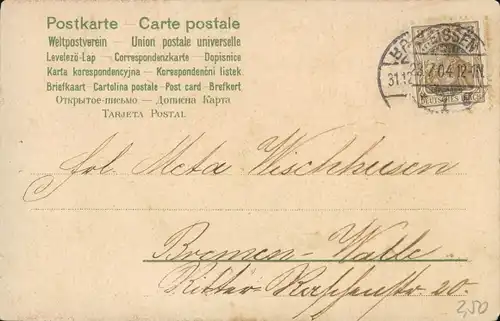 Postkarte — Carte postale
Weltpostverein — Union postale universelle
Levelező-Lap — Correspondenzkarte — Dopisnice
Karta korespondencyjna — Korespondenční lístek
Briefkaart - Cartolina postale - Post card - Brefkort
Открытое-письмо — Дописна Карта
TARJETA POSTAL
7 04 12-1N.
31.12
DEUTSCHES
Frl. Meta Wischhusen
Bremen-Walle
Ritter-Raschenstr. 20.
2,50